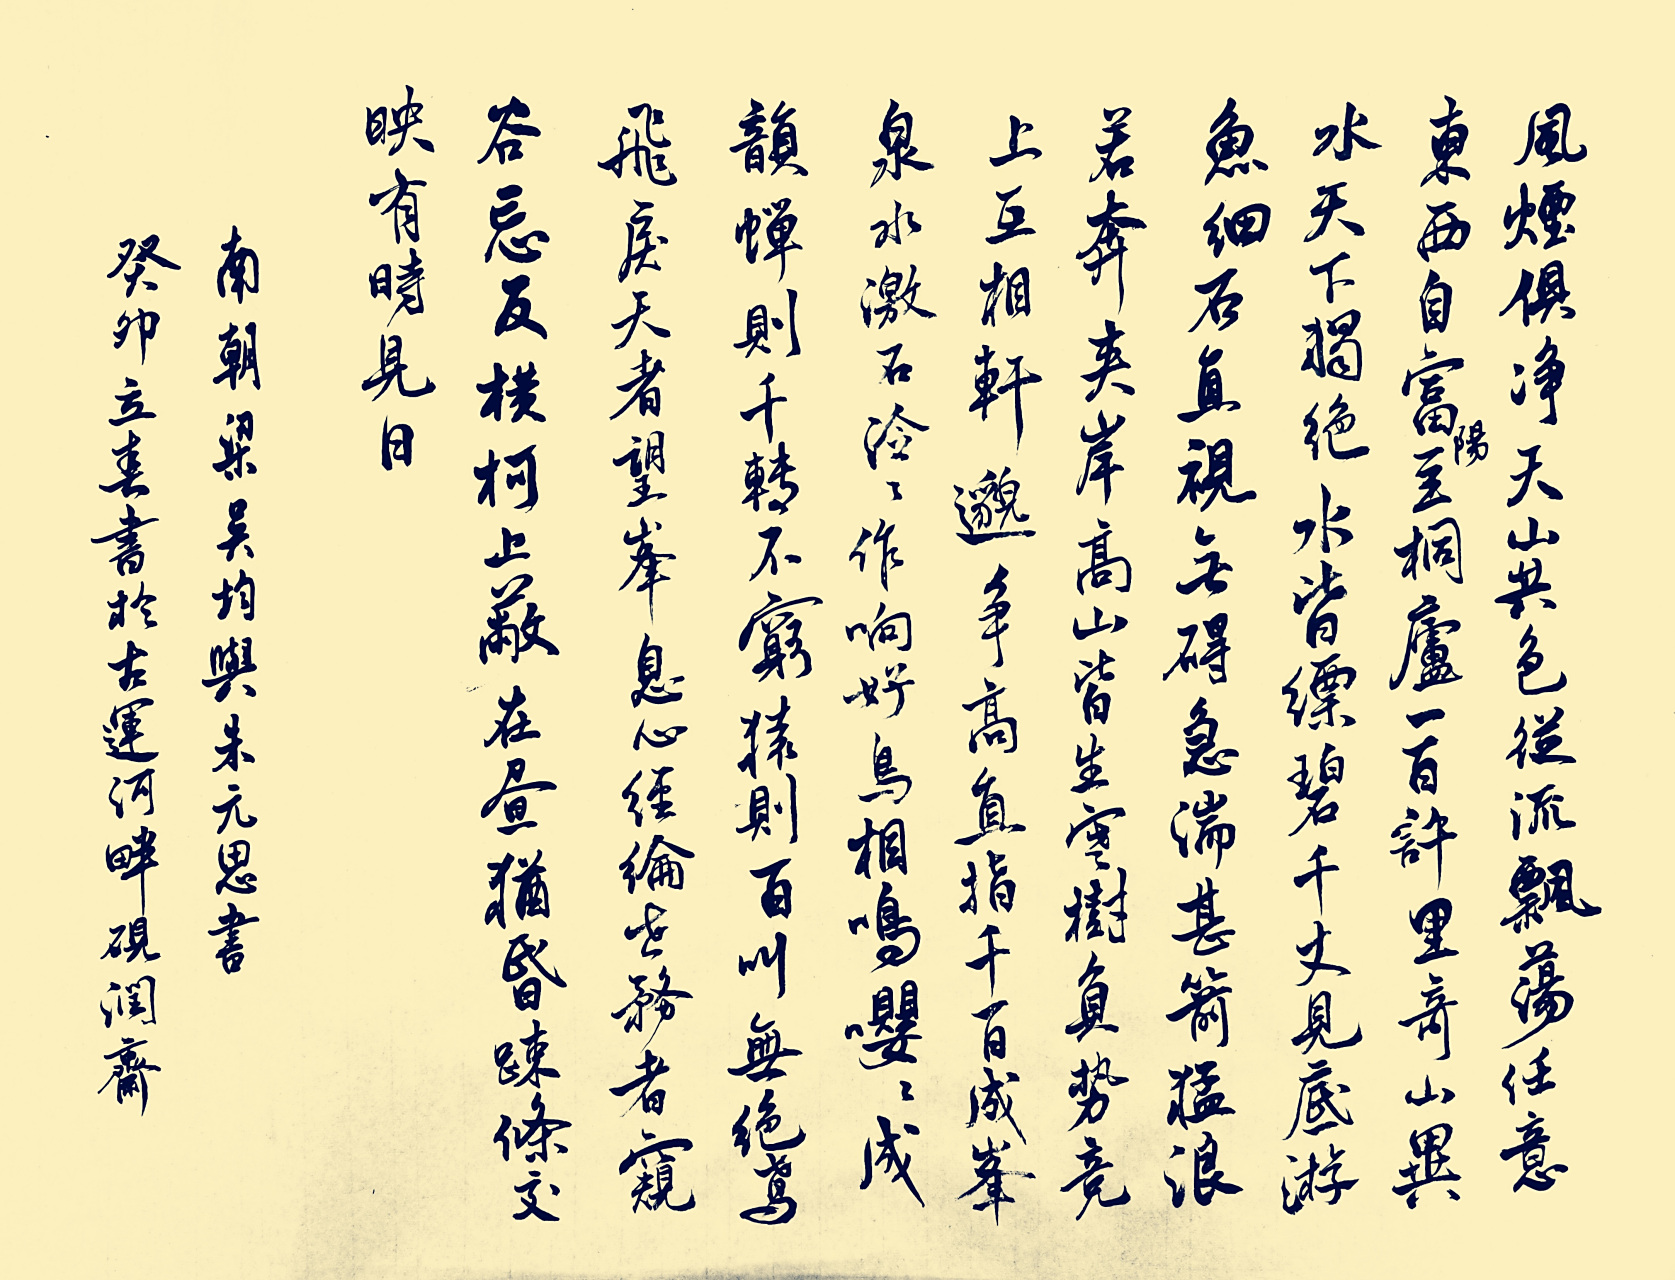 風煙俱净天山共色從流飄蕩任意
東西自富陽至桐廬一百許里奇山異
水天下獨絕水皆縹碧千丈見底游
魚細石直視無碍急湍甚箭猛浪
若奔夹岸高山皆生寒樹負勢竞
上互相軒邈争高直指千百成峯
泉水激石泠〻作响好鳥相鳴嚶〻成
韻蟬則千轉不窮猿則百叫無絕鳶
飛戾天者望峯息心經綸世務者窺
谷忘反横柯上蔽在昼猶昏踈條交
映有時見日
南朝梁吴均與朱元思書
癸卯立春書於古運河畔硯潤齋